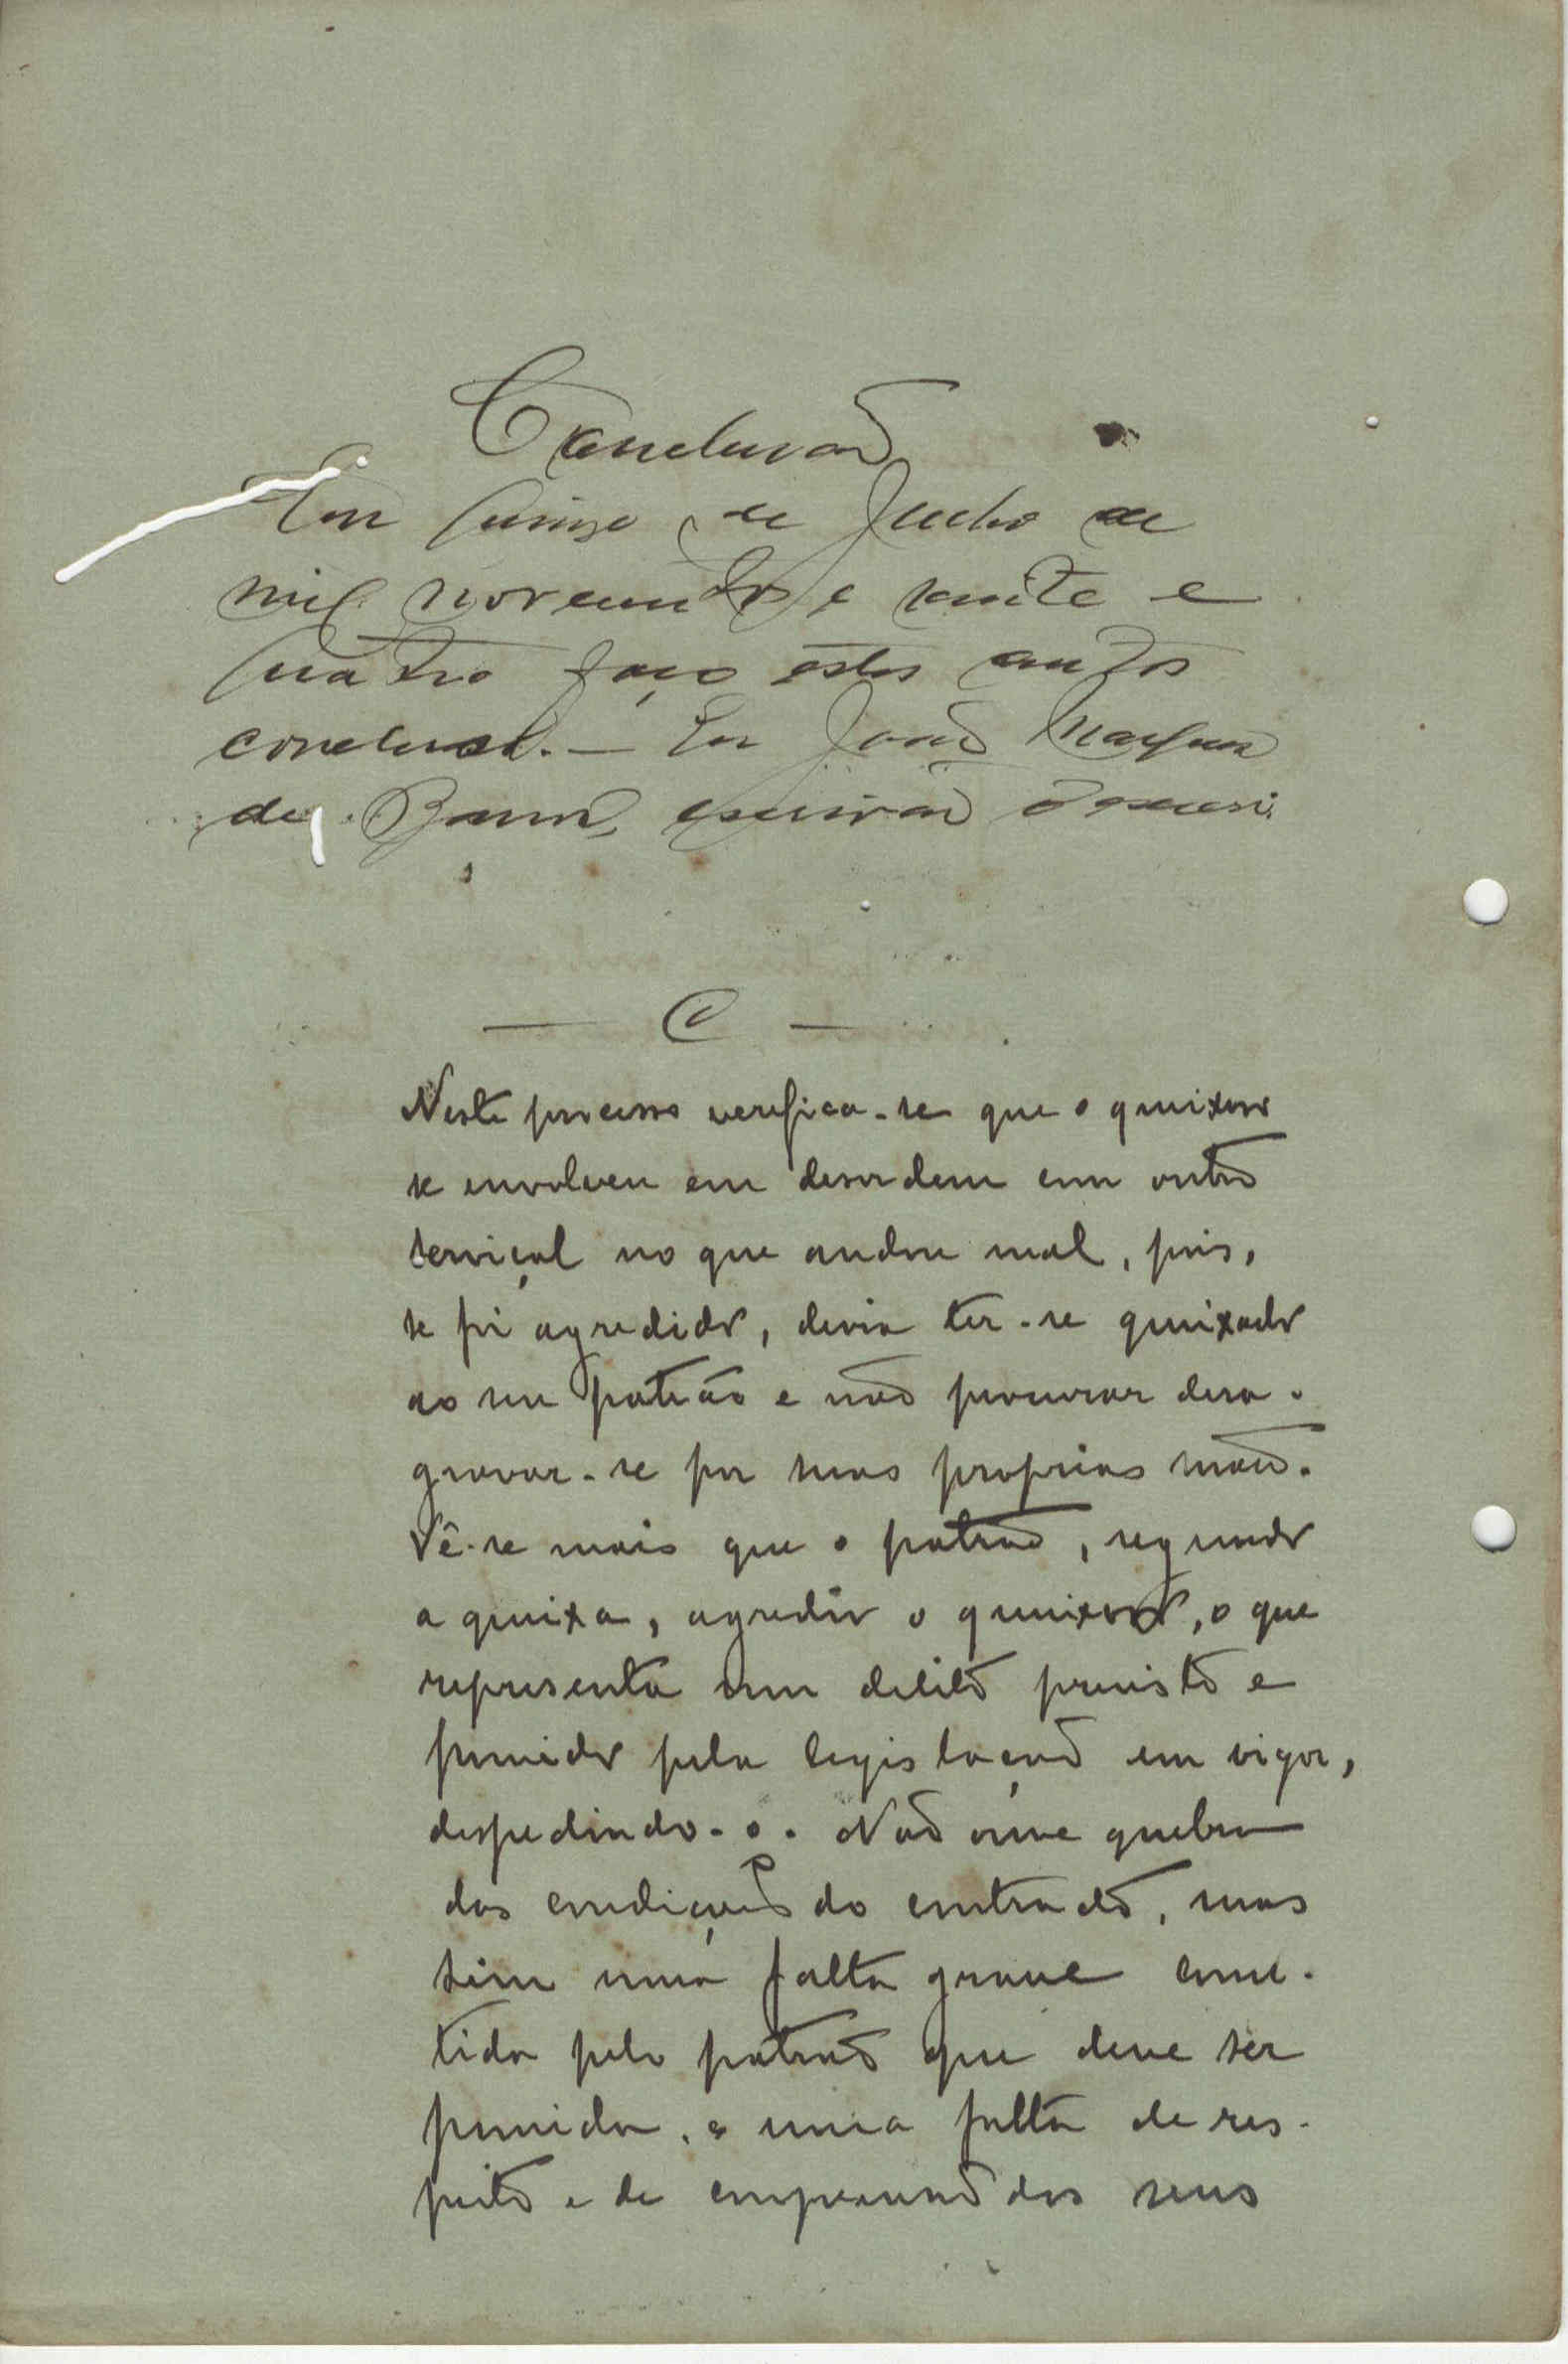 Conclusão
Em quinze de Julho de
mil novecentos e vinte e
quatro faço estes autos
conclusos. — Eu João Marques
de Barros, escrivão o escrevi.
— C —
Neste processo verifica-se que o queixoso
se envolveu em desordem com outro
serviçal no que andou mal, pois,
se foi agredido, devia ter-se queixado
ao seu patrão e não procurar desa-
gravar-se por suas proprias mãos.
Vê-se mais que o patrão, segundo
a queixa, agrediu o queixoso, o que
representa um delito previsto e
punido pela legislação em vigor,
despedindo-o. Não ouve quebra
das condições do contracto, mas
sim uma falta grave come-
tida pelo patrão que deve ser
punida, e uma falta de res-
peito e de compreensão dos seus